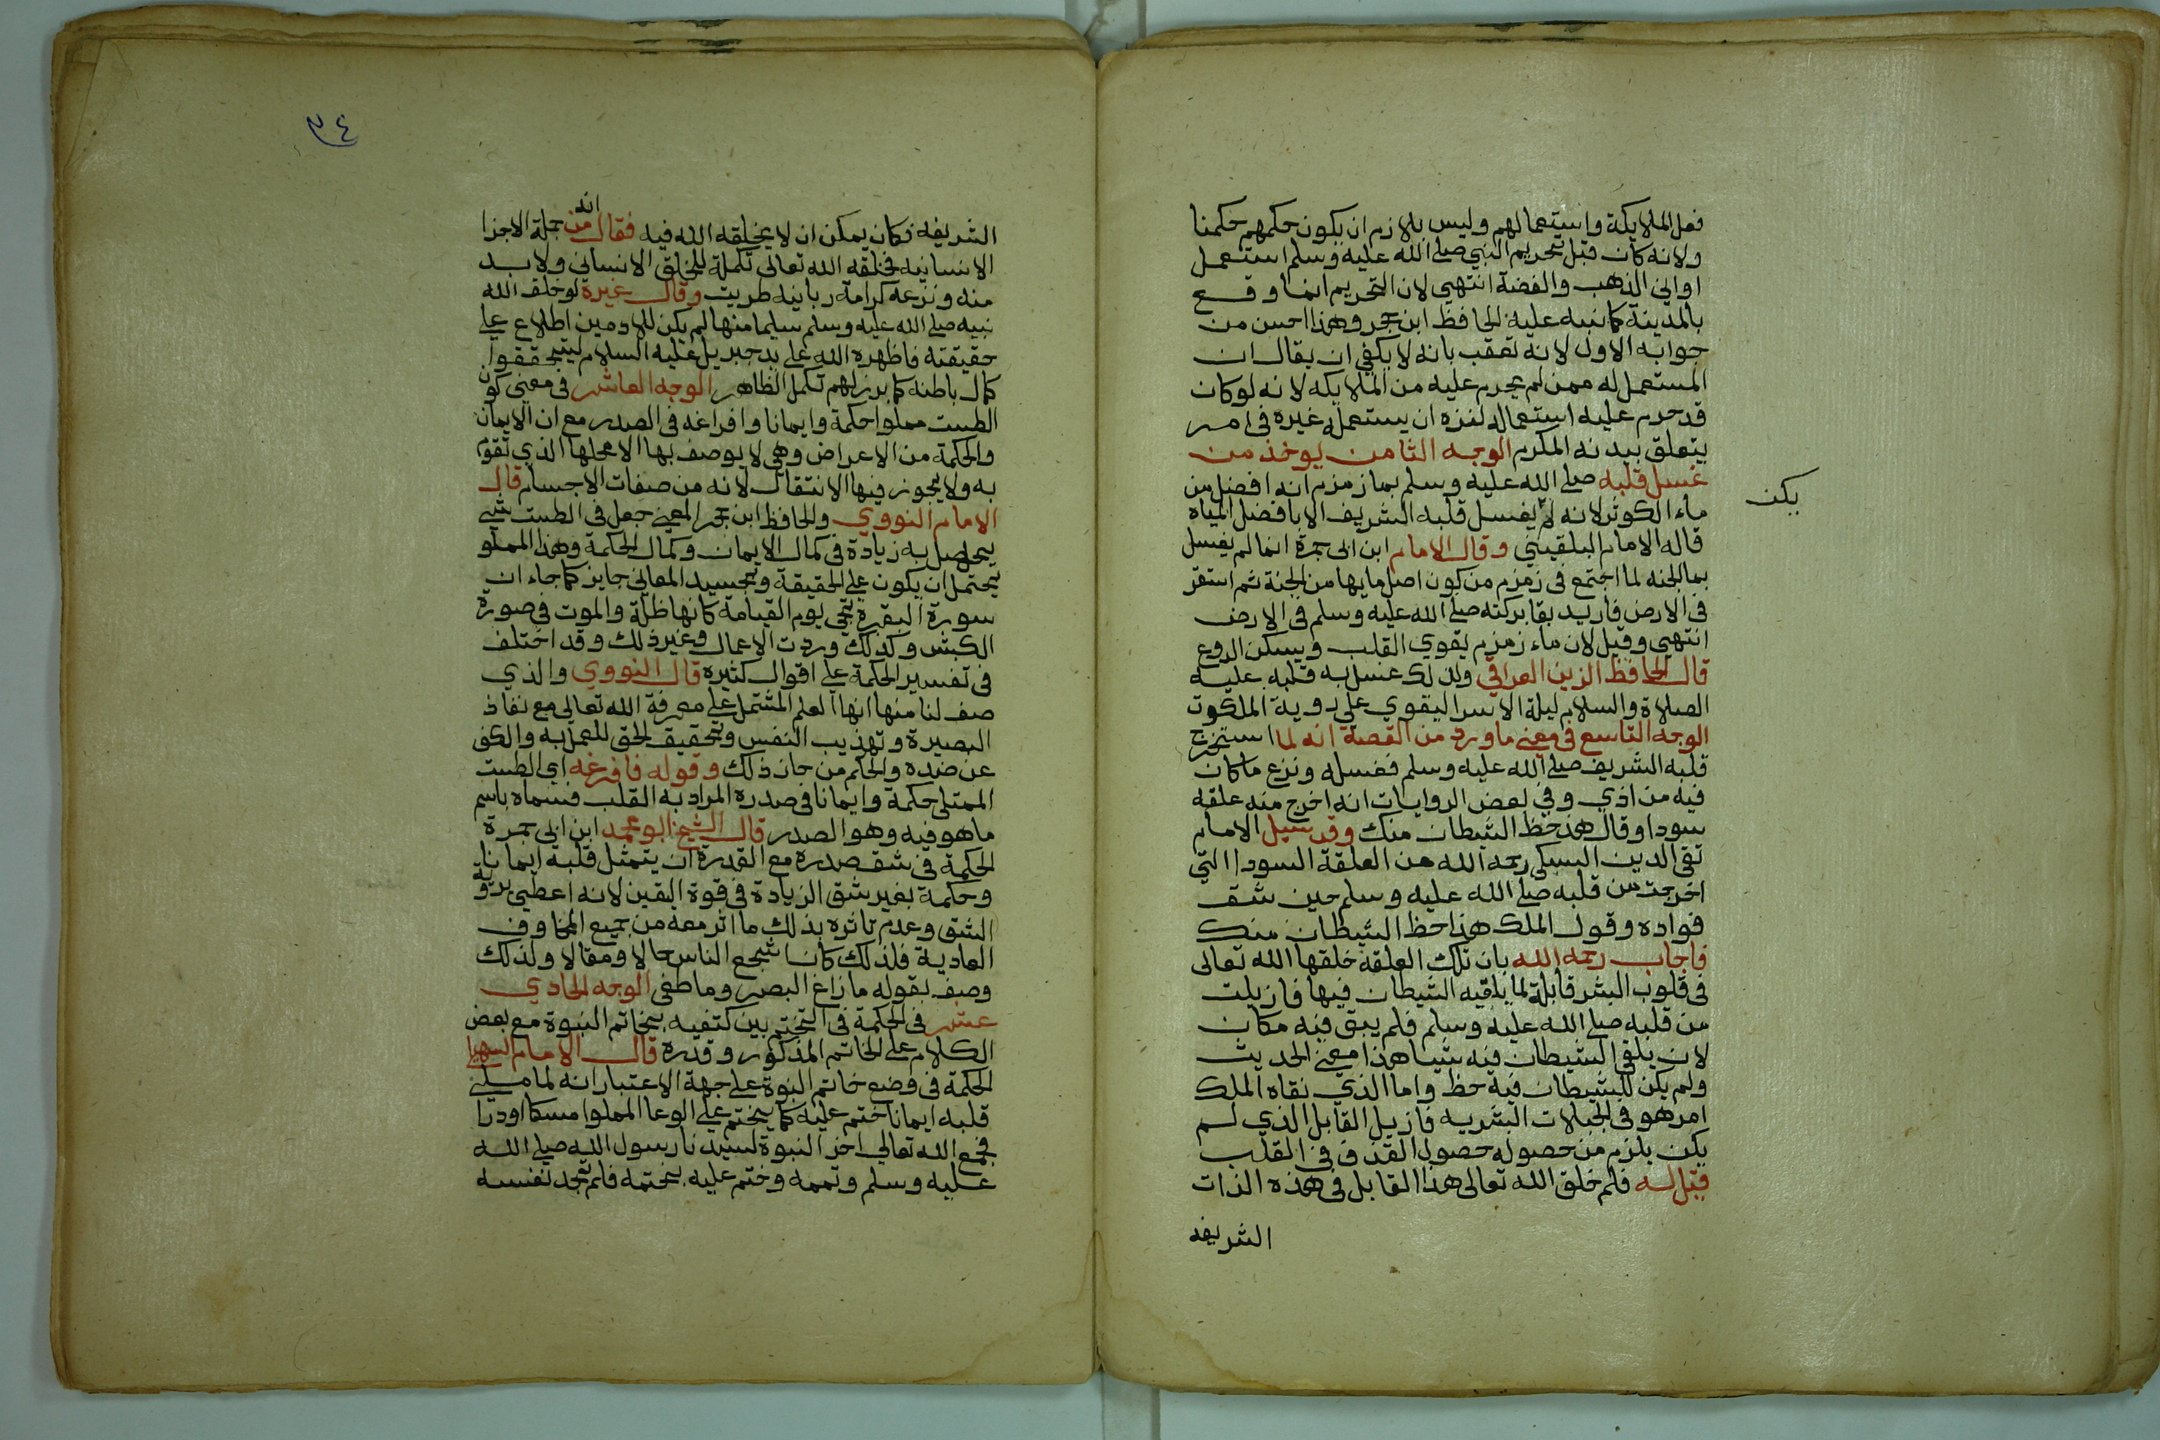 فعل الملايكة واستعمالهم وليس بلازم ان يكون حكمهم حكمنا
ولانه كان قبل تحريم النبي صلى الله عليه وسلم استعمل
اواني الذهب والفضة انتهى لان التحريم انما وقع
بالمدينة كما نبه عليه الحافظ ابن حجر وهذا احسن من
جوابه الاول لانه تعقب بانه لا يكفي ان يقال ان
المستعمل له ممن لم يحرم عليه من الملايكه لانه لو كان
قد حرم عليه استعماله لنزه ان يستعمله غيره في امر
يتعلق ببدنه المكرم الوجه الثامن يوخذ من
غسل قلبه صلى الله عليه وسلم بماء زمزم انه افضل من
ماء الكوثر لانه لم يغسل قلبه الشريف الا بافضل المياه
يكن
قاله الامام البلقيني وقال الامام ابن ابى جمرة انما لم يغسل
بما الجنه لما اجتمع في زمزم من كون اصل مايها من الجنة ثم استقر
فى الارض فاريد بقا بركته صلى الله عليه وسلم في الارض
انتهى وقيل لان ماء زمزم يقوي القلب ويسكن الروع
قال الحافظ الزين العراقي ولذلك غسل به قلبه عليه
الصلاة والسلام ليلة الاسرا ليقوي على روية الملكوت
الوجه التاسع في معنى ما ورد من القصة انه لما استخرج
قلبه الشريف صلى الله عليه وسلم فغسله ونزع ما كان
فيه من اذي وفي بعض الروايات انه اخرج منه علقه
سودا وقال هذ حظ الشيطان منك وقد سيل الامام
تقى الدين السبكى رحمه الله عن العلقة السودا التي
اخرجت من قلبه صلى الله عليه وسلم حين شق
فواده وقول الملك هذا حظ الشيطان منك
فاجاب رحمه الله بان تلك العلقة خلقها الله تعالى
في قلوب البشر قابلة لما يلقيه الشيطان فيها فازيلت
من قلبه صلى الله عليه وسلم فلم يبق فيه مكان
لان يلقى الشيطان فيه شيا هذا معنى الحديث
ولم يكن للشيطان فيه حظ واما الذي نقاه الملك
امر هو فى الجبلات البشريه فازيل القابل الذي لم
يكن يلزم من حصوله حصول القذف في القلب
قيل له فلم خلق الله تعالى هذا القابل في هذه الذات
الشريفه
٣٤
الشريفه فكان يمكن ان لا يخلقه الله فيه فقال من جملة الاجزا
انه
الانسانيه فخلقه الله تعالى تكملة للخلق الانسانى ولا بد
منه ونزعه كرامة ربانيه طريت وقال غيره لو خلق الله
نبيه صلى الله عليه وسلم سليما منها لم يكن للادمين اطلاع على
حقيقته فاظهره الله على يد جبريل عليه السلام ليتحققوا
كمال باطنه كما برز لهم تكمل الظاهر الوجه العاشر في معنى كون
الطست مملوا حكمة وايمانا وافراغه فى الصدر مع ان الايمان
والحكمة من الاعراض وهي لا يوصف بها الا محلها الذي تقوم
به ولا يجوز فيها الانتقال لانه من صفات الاجسام قال
الامام النووي والحافظ ابن حجر المعنى جعل فى الطست شى
يحصل به زيادة فى كمال الايمان وكمال الحكمة وهذا المملو
يحتمل ان يكون على الحقيقة وتجسيد المعانى جايز كما جاء ان
سورة البقرة تجى يوم القيامة كانها ظلة والموت في صورة
الكبش وكذلك وردت الاعمال وغير ذلك وقد اختلف
فى تفسير الحكمة على اقوال كثيره قال النووي والذي
صف لنا منها انها العلم المشتمل على معرفة الله تعالى مع نفاذ
البصيرة وتهذيب النفس وتحقيق الحق للعمل به والكف
عن ضده والحكم من حاز ذلك وقوله فافرغه اي الطست
الممتلى حكمة وايمانا فى صدره المراد به القلب فسماه باسم
ما هو فيه وهو الصدر قال الشيخ ابو محمد ابن ابى جمرة
الحكمة في شق صدره مع القدرة ان يتمثل قلبه ايمانا
وحكمة بغير شق الزيادة فى قوة اليقين لانه اعطي بروية
الشق وعدم تاثره بذلك ما اثر معه من جميع المخاوف
العادية فلذلك كان اشجع الناس حالا ومقالا ولذلك
وصف بقوله ما زاغ البصر وما طغى الوجه الحادي
عشر في الحكمة فى التختم بين كتفيه بخاتم النبوة مع بعض
الكلام على الخاتم المذكور وقدره قال الامام السهيلى
الحكمة فى وضع خاتم النبوة على جهة الاعتبار انه لما ملى
قلبه ايمانا ختم عليه كما يختم على الوعا المملوا مسكا او درا
فجمع الله تعالى اخر النبوة لسيدنا رسول الله صلى الله
عليه وسلم وتممه وختم عليه بختمه فلم تجد نفسه